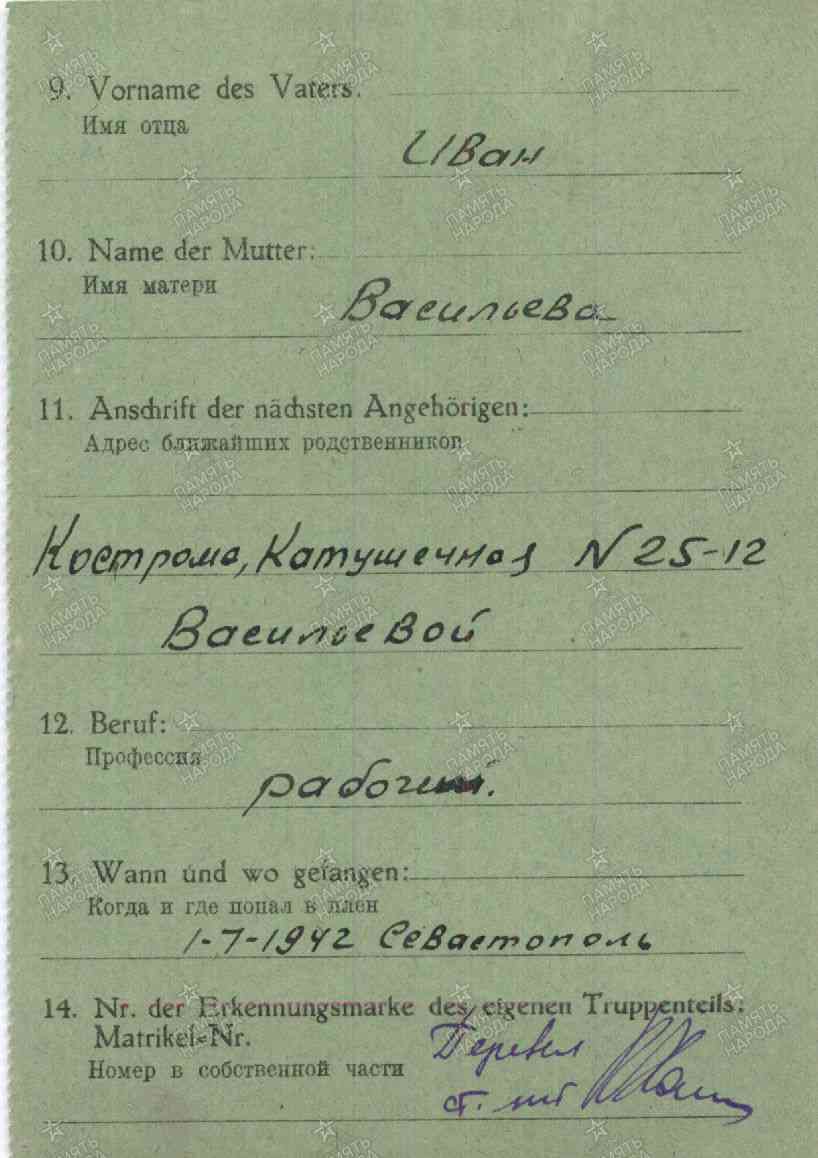 9. Vorname des Vaters:
Имя отца
Иван
10. Name der Mutter:
Имя матери
Васильева
11. Anschrift der nächsten Angehörigen:
Адрес ближайших родственников
Кострома, Катушечная N 25-12
Васильевой
12. Beruf:
Профессия
рабочий.
13. Wann und wo gefangen:
Когда и где попал в плен
1-7-1942 Севастополь
14. Nr. der Erkennungsmarke des eigenen Truppenteils:
Matrikel-Nr.
Номер в собственной части
Перевел
ст.
ПАМЯТЬ НАРОДА